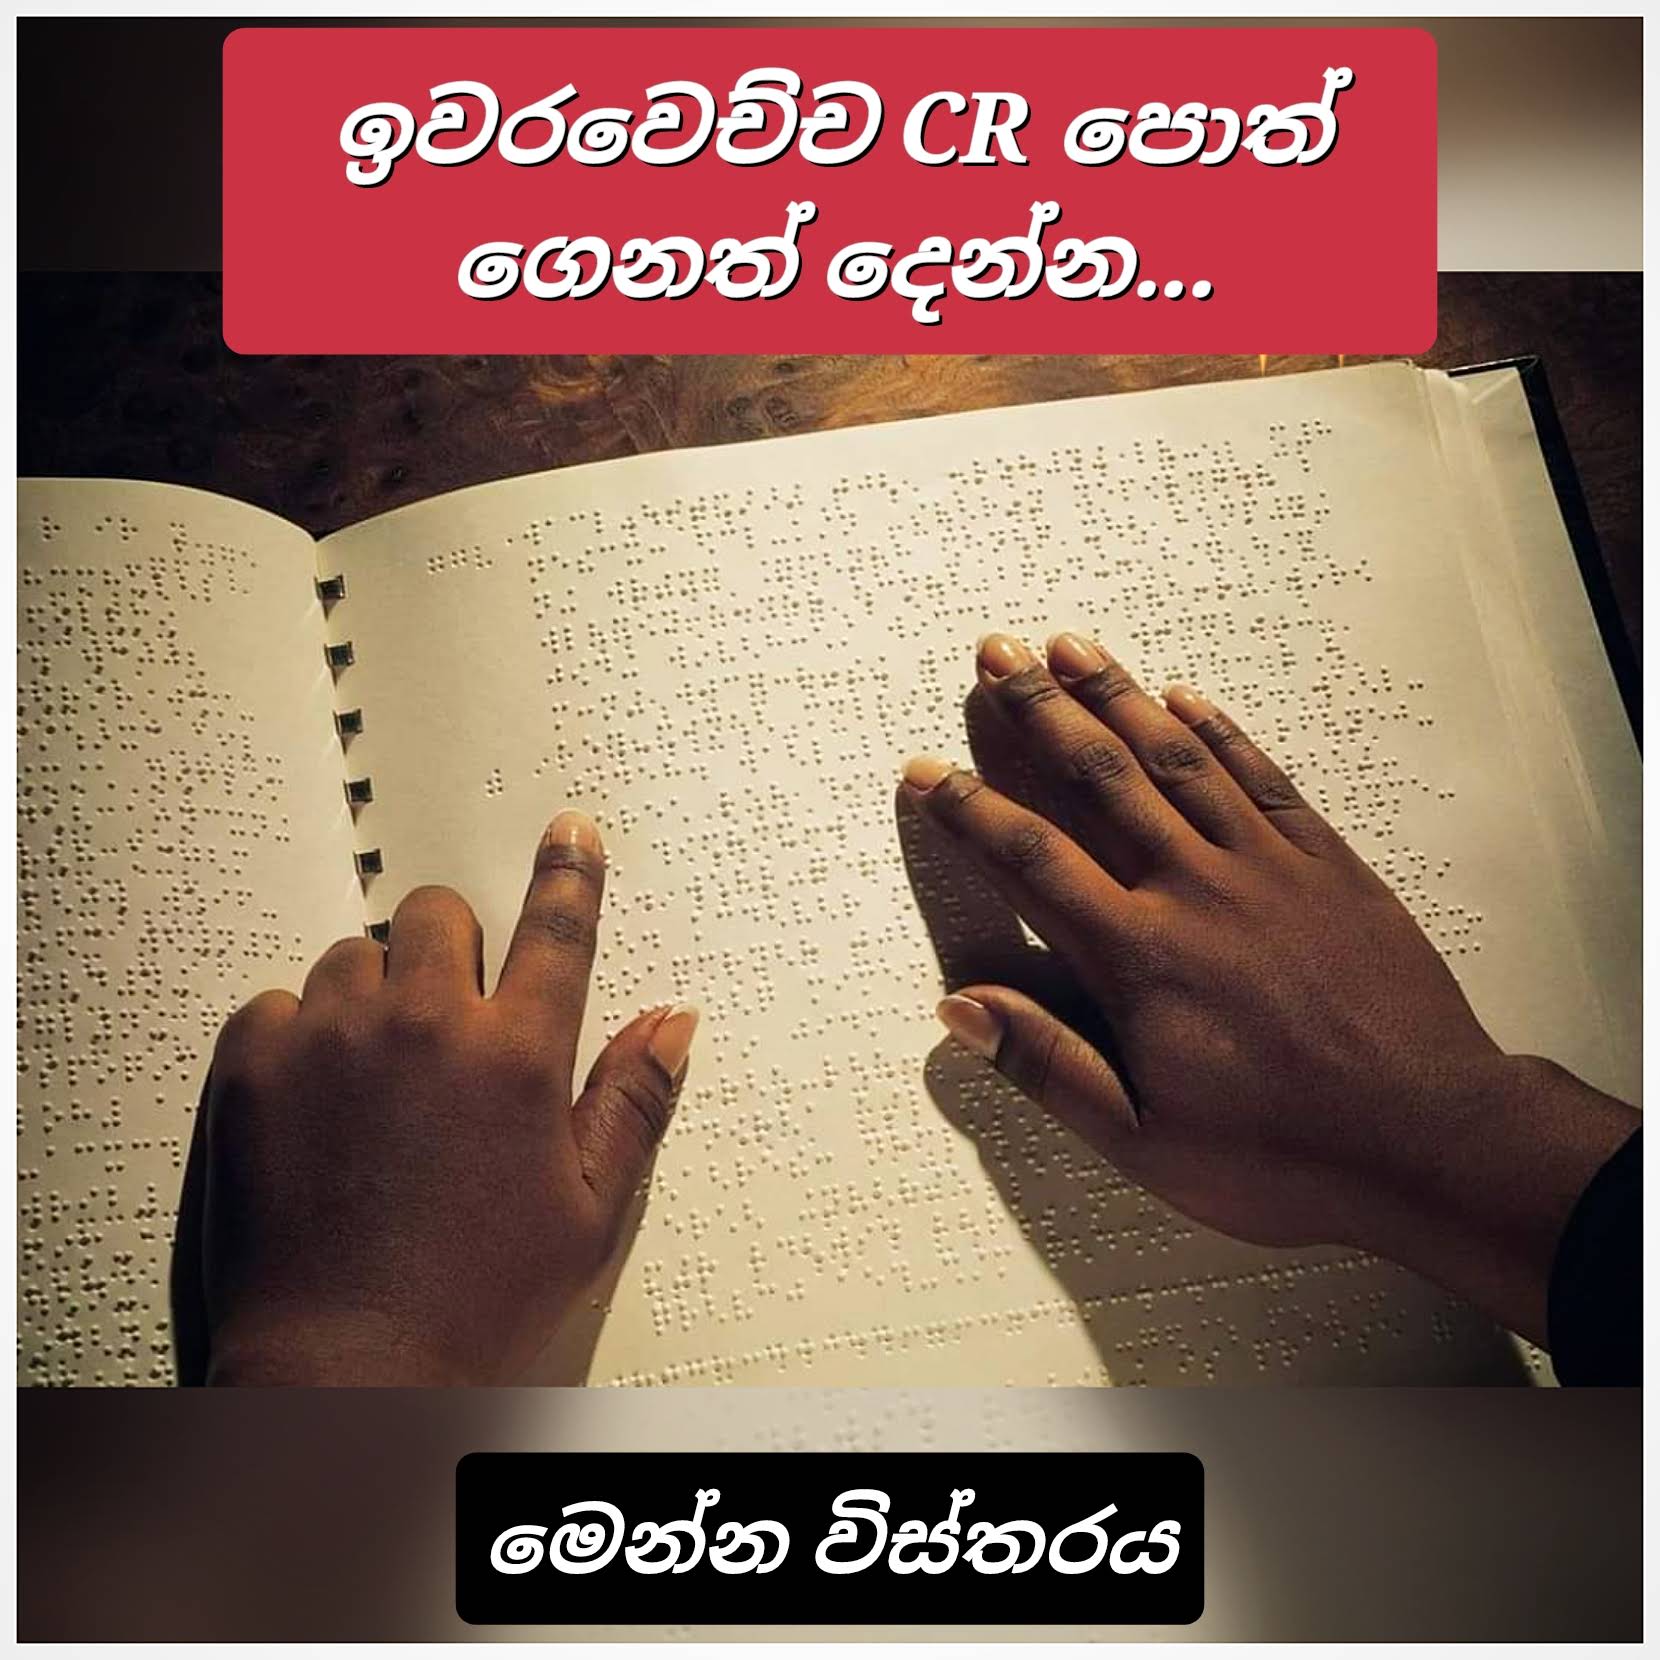 ඉවරවෙච්ච CR පොත්
ගෙනත් දෙන්න...
මෙන්න විස්තරය